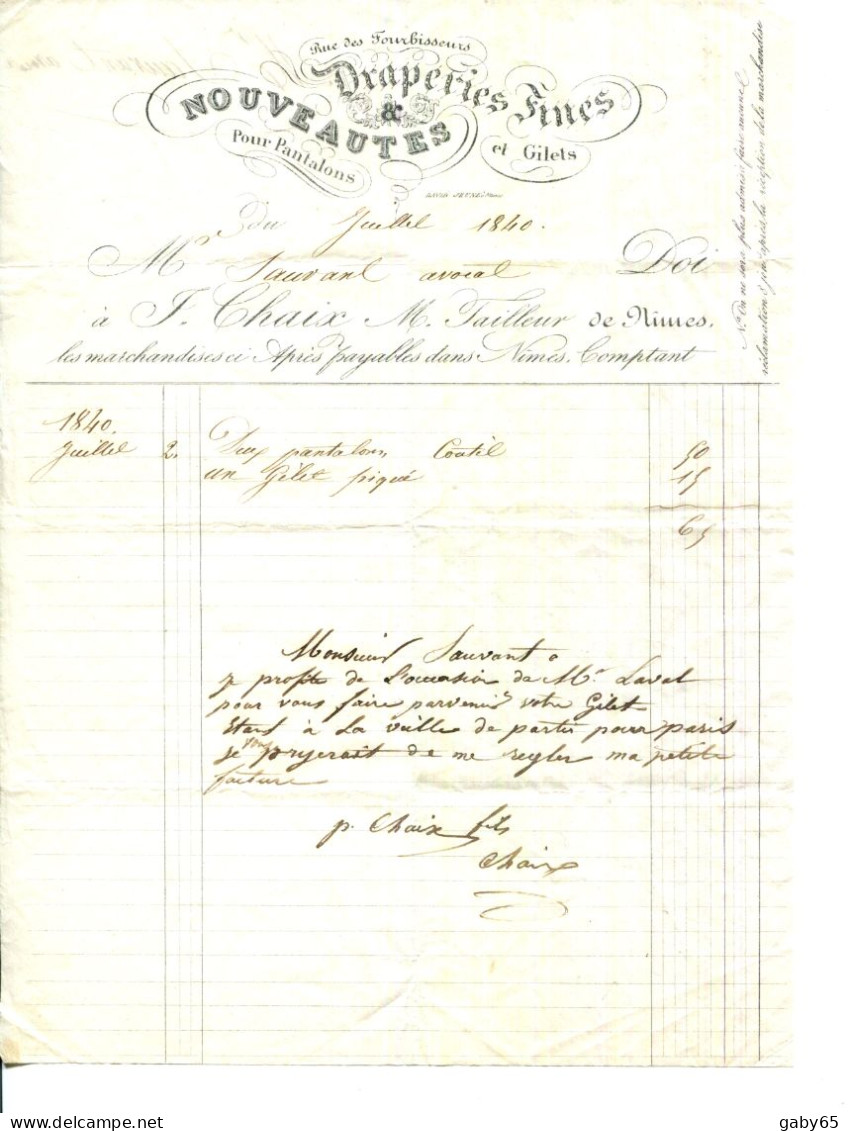 Rue des Fourbisseurs
Draperies Fines
&
NOUVEAUTES
Pour Pantalons
et Gilets
du Juillet 1840.
Mr Sauvant avocat Doi
à J. Chaix M. Tailleur de Nîmes.
les marchandises ci Après payables dans Nîmes, Comptant
No. On ne sera plus admis à faire aucune
réclamation 8 jours après la réception de la marchandise
1840.
Juillet 2. Deux pantalons Coutil 50
un Gilet piqué 15
65
Monsieur Sauvant
je profite de l'occasion de Mr. Laval
pour vous faire parvenir votre Gilet
Etant à La veille de partir pour paris
je vous pryerait de me regler ma petite
facture
p. Chaix fils
Chaix
gaby65